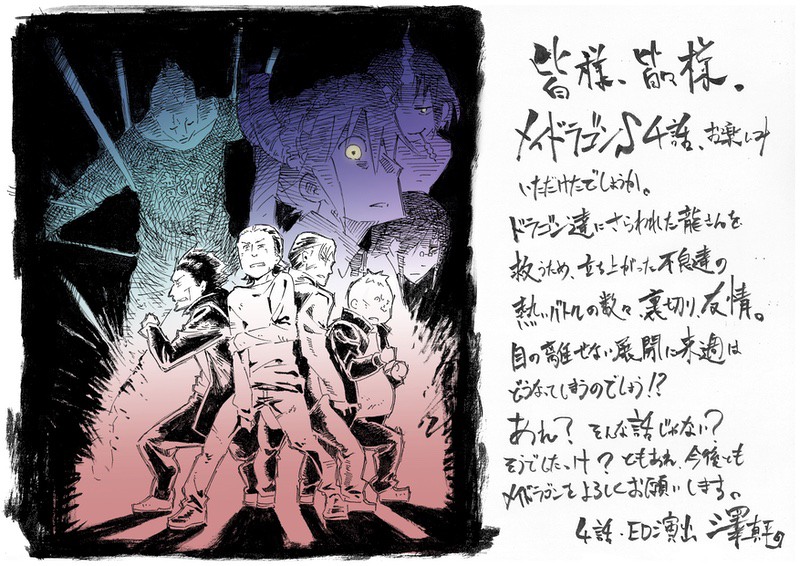 皆様、皆々様。
メイドラゴンS4話、お楽しみ
いただけたでしょうか。
ドラゴン達にさらわれた龍さんを
救うため、立ち上がった不良達の
熱いバトルの数々、裏切り、友情。
目の離せない展開に来週は
どうなってしまうのでしょう!?
あれ?そんな話じゃない?
そうでしたっけ?ともあれ、今後とも
メイドラゴンをよろしくお願いします。
4話・ED演出 澤真平